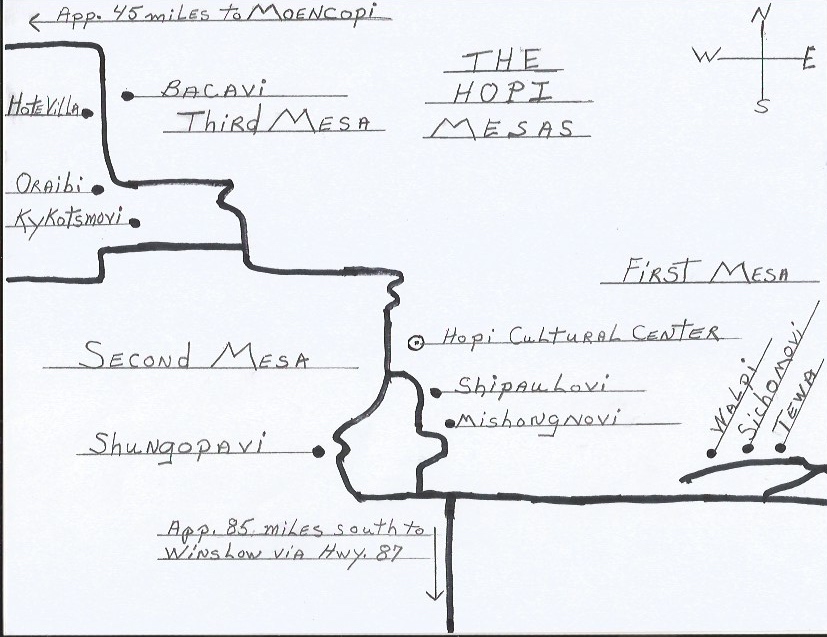 ← App. 45 miles to Moencopi
N
W E
S
THE
HOPI
MESAS
Bacavi
Hotevilla
Third Mesa
Oraibi
Kykotsmovi
First Mesa
Hopi Cultural Center
Second Mesa
Shipaulovi
Mishongnovi
Walpi
Sichomovi
Tewa
Shungopavi
App. 85 miles south to
Winslow via Hwy. 87